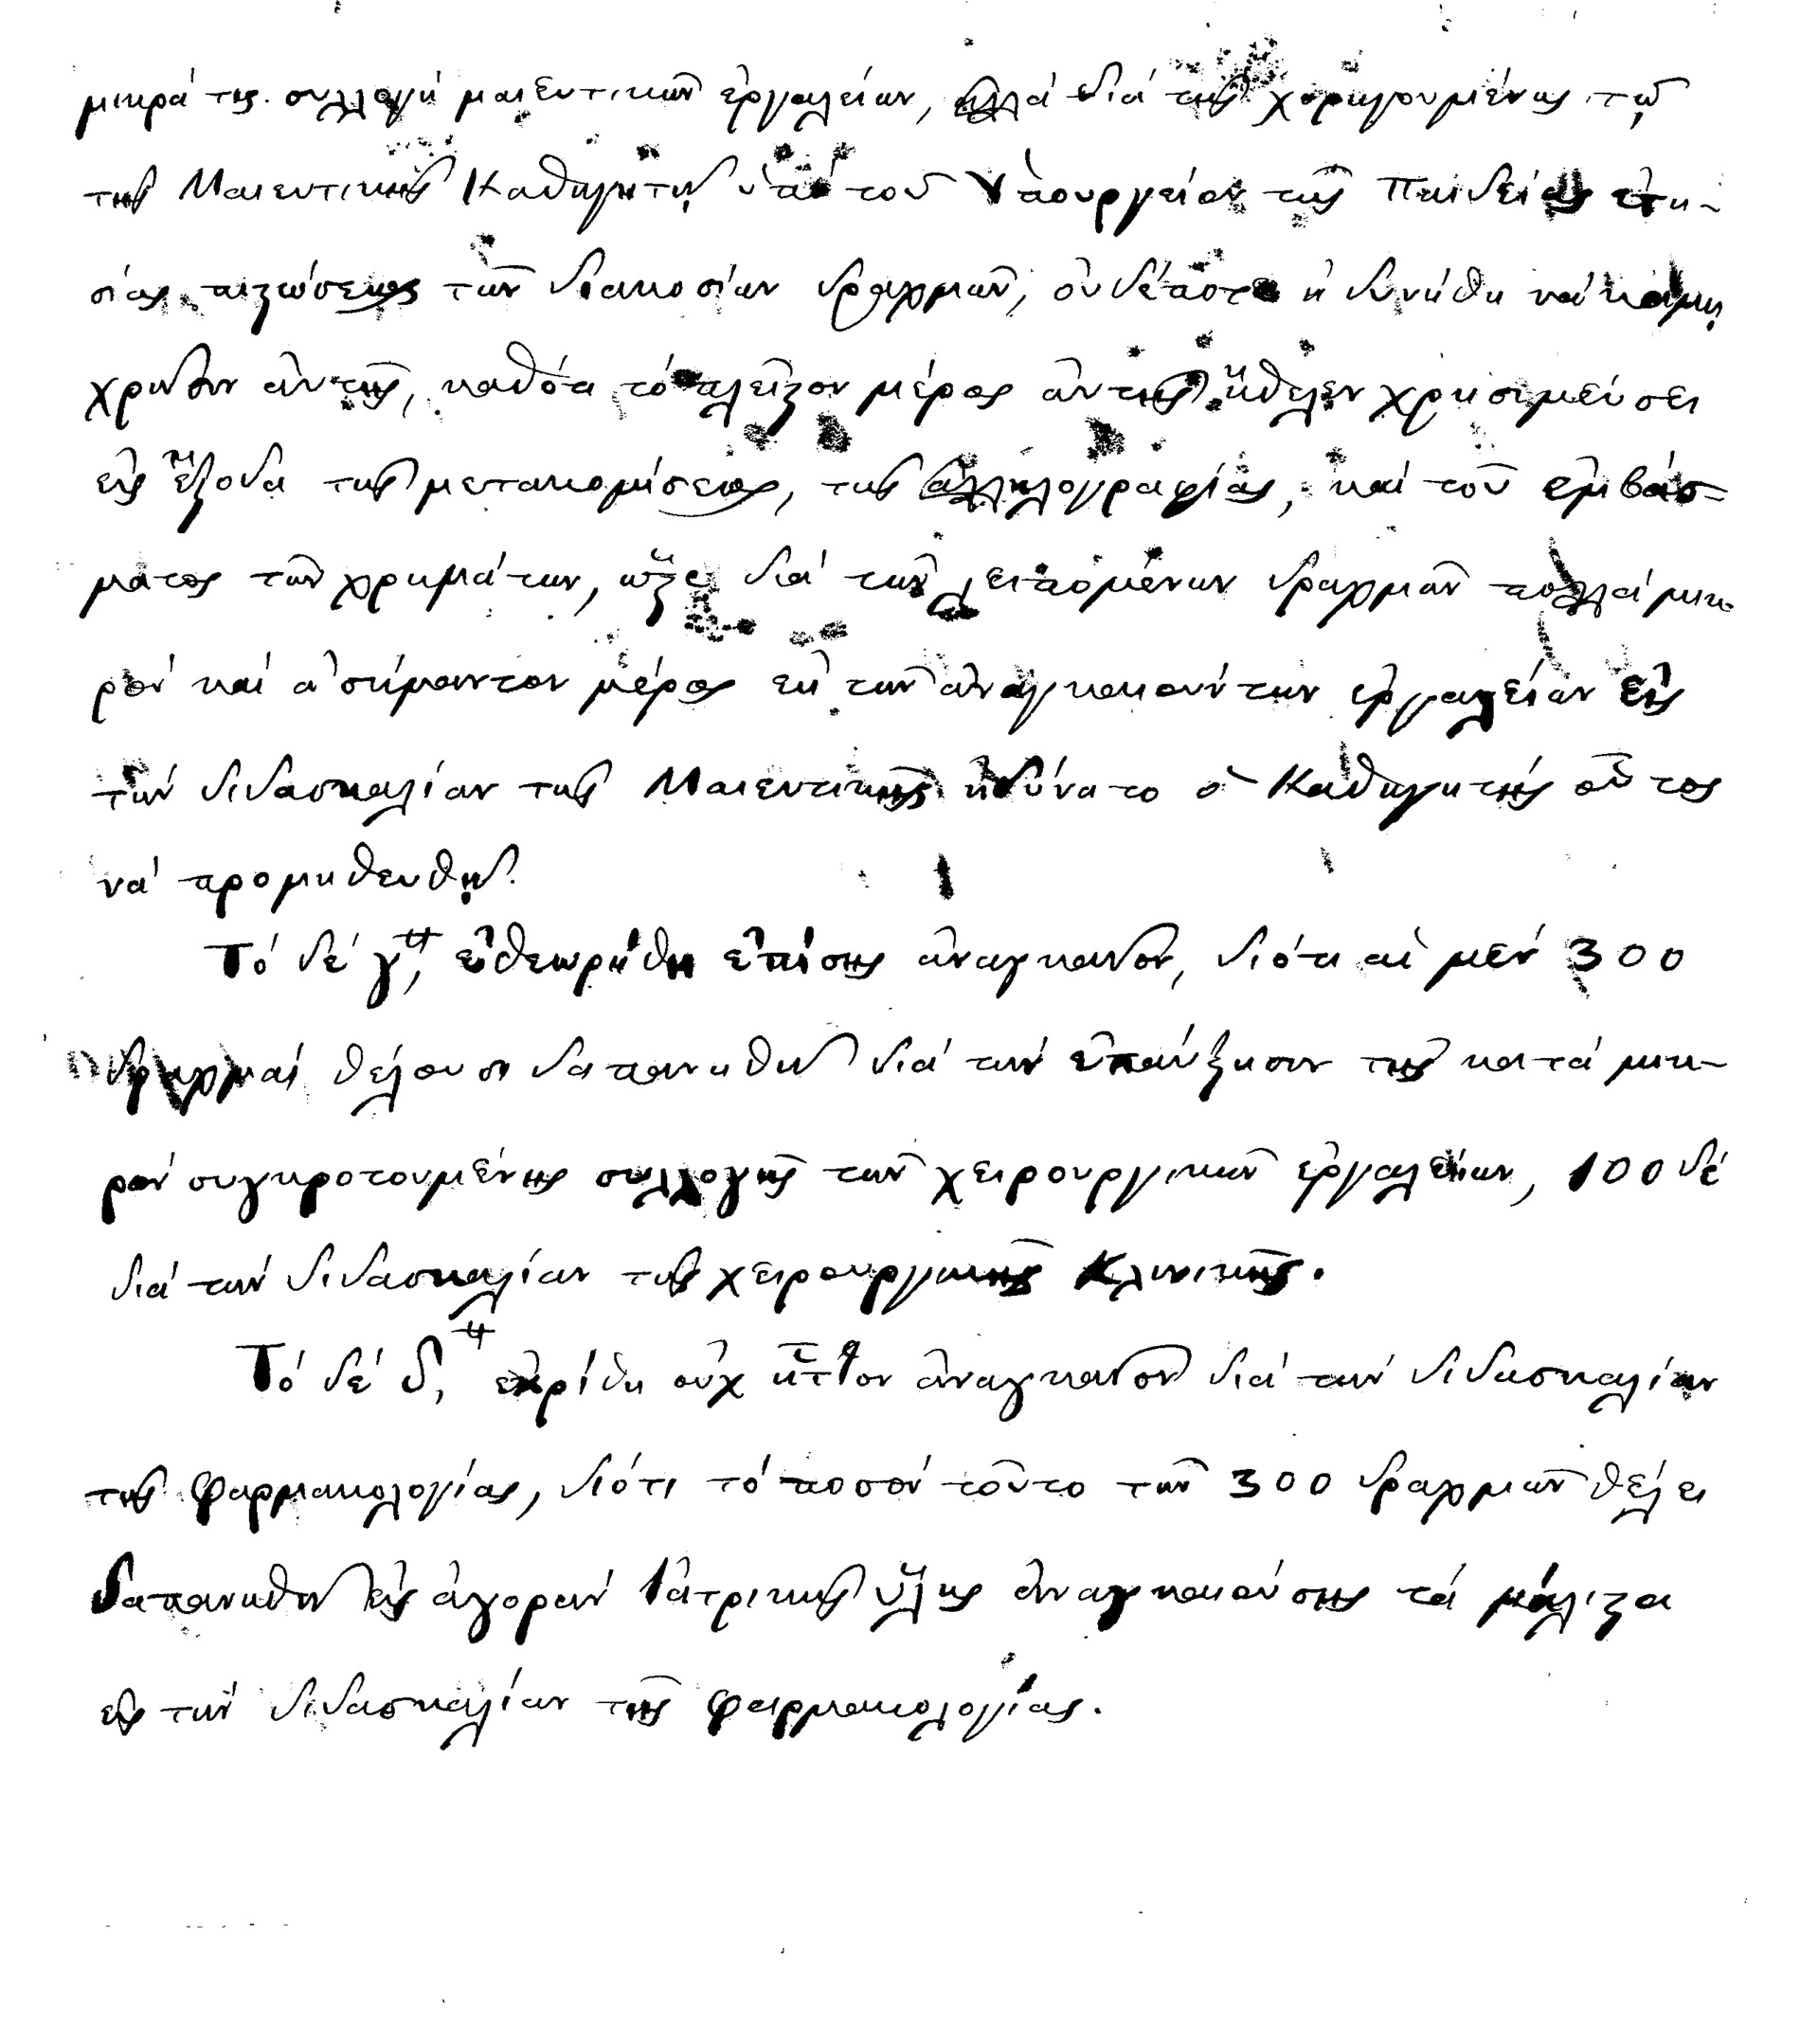 μικρά τις συλλογή μαιευτικῶν ἐργαλείων, ἀλλά διά τῆς χορηγουμένης τῷ
τῆς Μαιευτικῆς Καθηγητῇ ὑπό τοῦ Ὑπουργείου τῆς Παιδείας ἐτη-
σίας πιστώσεως τῶν διακοσίων δραχμῶν, οὐδέποτε ἠδυνήθη νά κάμῃ
χρῆσιν αὐτῆς, καθότι τό πλεῖστον μέρος αὐτῆς ἤθελεν χρησιμεύσει
εἰς ἔξοδα τῆς μετακομίσεως, τῆς ἀλληλογραφίας, καί τοῦ ἐμβάσ-
ματος τῶν χρημάτων, ὥστε διά τῶν λειπομένων δραχμῶν πολλά μικ-
ρόν καί ἀσήμαντον μέρος ἐκ τῶν ἀναγκαιούντων ἐργαλείων εἰς
τήν διδασκαλίαν τῆς Μαιευτικῆς ἠδύνατο ὁ Καθηγητής οὗτος
νά προμηθευθῇ.
Τό δέ γ, ἐθεωρήθη ἐπίσης ἀναγκαῖον, διότι αἱ μέν 300
δραχμαί θέλουσι δαπανηθῆ διά τήν ἐπαύξησιν τῆς κατά μικ-
ρόν συγκροτουμένης συλλογῆς τῶν χειρουργικῶν ἐργαλείων, 100 δέ
διά τήν διδασκαλίαν τῆς χειρουργικῆς Κλινικῆς.
Τό δέ δ, ἐκρίθη οὐχ ἧττον ἀναγκαῖον διά τήν διδασκαλίαν
τῆς φαρμακολογίας, διότι τό ποσόν τοῦτο τῶν 300 δραχμῶν θέλει
δαπανηθῆ εἰς ἀγοράν Ἰατρικῆς ὕλης ἀναγκαιούσης τά μάλιστα
εἰς τήν διδασκαλίαν τῆς φαρμακολογίας.